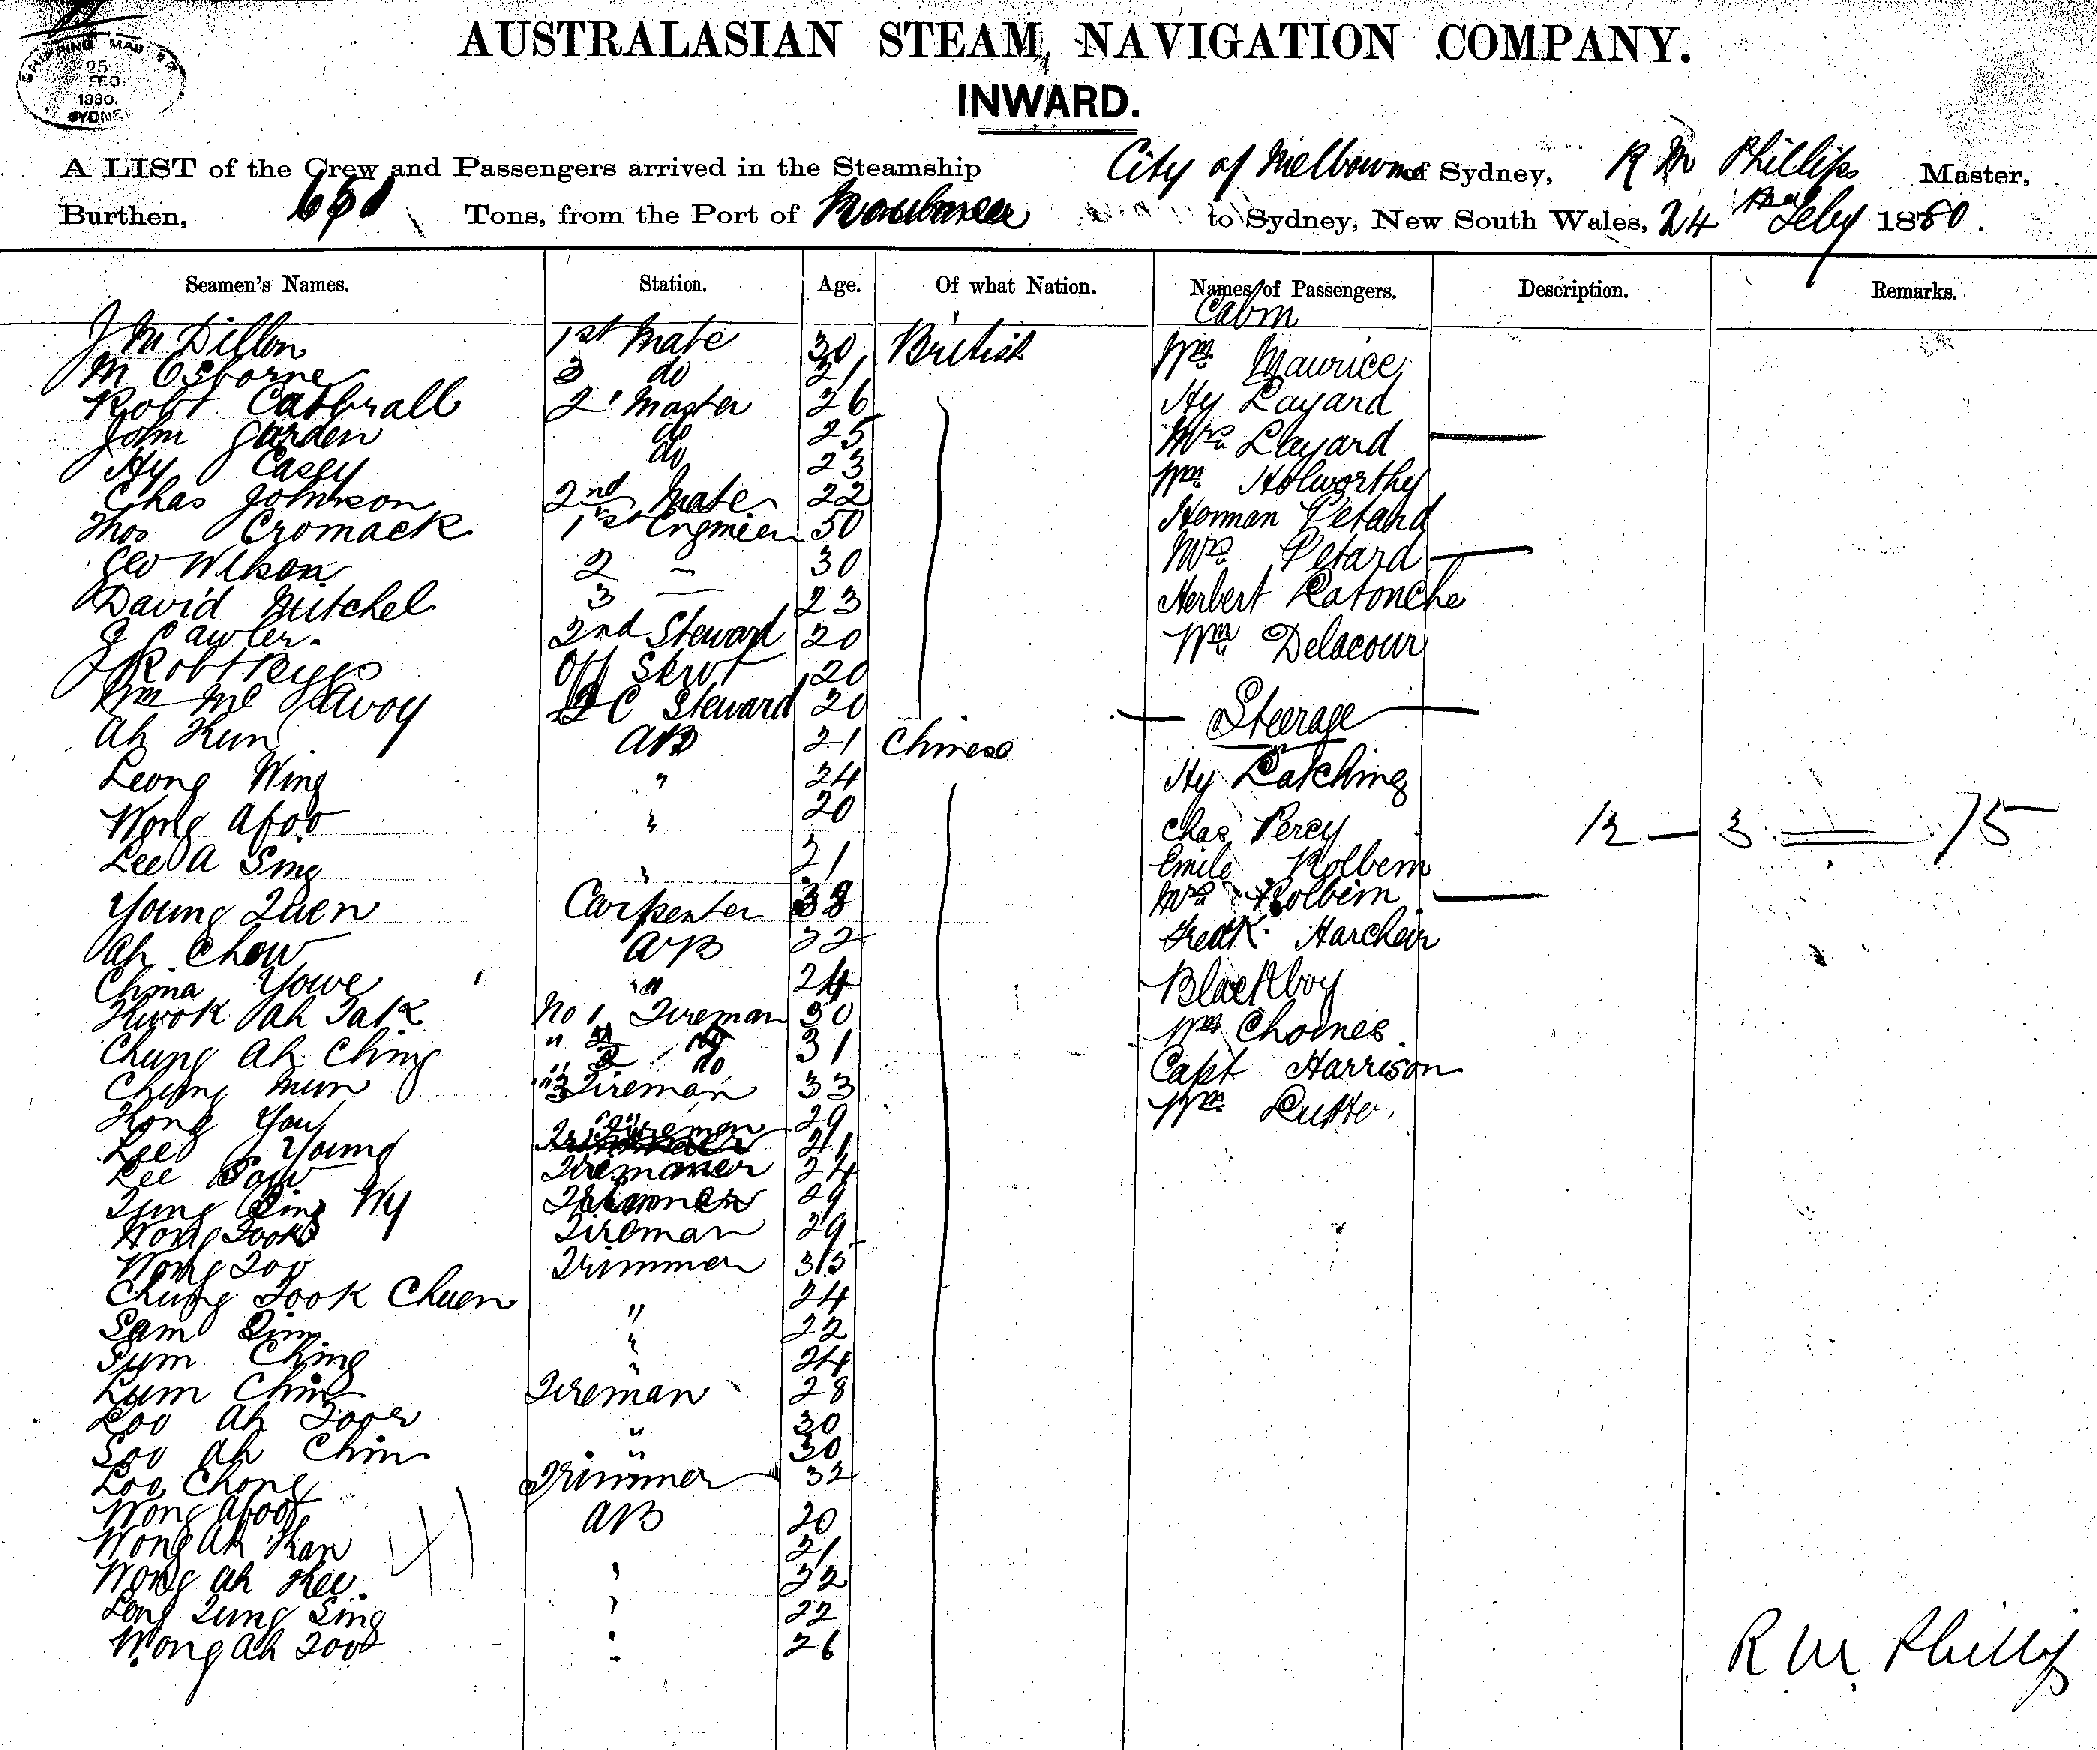 SHIPPING MASTER
25
FEB
1880
SYDNEY
AUSTRALASIAN STEAM NAVIGATION COMPANY.
INWARD.
A LIST of the Crew and Passengers arrived in the Steamship City of Melbourne of Sydney, R M Phillips Master,
Burthen, Tons, from the Port of Noumea to Sydney, New South Wales, 24 Feby 1880.
Seamen's Names. Station. Age. Of what Nation. Names of Passengers. Description. Remarks.
Cabin
J M Dillon 1st Mate 30 British Wm Maurice
M Osborne 3 do 21 Hy Layard
Robt Catbrall 2' Master 26 Mrs Layard —
John Garden do 25 Wm Holworthy
Hy Casey do 23 Herman Petard
Chas Johnson 2nd Mate 22 Mrs Petard —
Thos Cromack 1st Engineer 50 Herbert Latonche
Geo Wilson 2 — 30 Wm Delacour
David Mitchel 3 — 23
J Lawler 2nd Steward 20
Robt 20
Wm Mc Steward 20 — Steerage —
Ah Kun AB 21 Chinese
Leong Wing " 24 Hy Latching
Wong Afoo " 20 Chas Percy 12 — 3 — 15
Lee A Sing " 21 Emile Holbein
Young Quen Carpenter 38 Mrs Holbein —
Ah Chow AB 22 Fredk
China Yowe " 24 Blackboy
Kwok Ah Tak No 1 Fireman 30 Wm Choines
Chung Ah Ching " 2 do 31 Capt Harrison
Chung Mun " 3 Fireman 33 Wm
Hong You Fireman 29
Lee Young 21
Lee 24
Tung Sing Wy Trimmer 29
Wong Fook Fireman 29
Wong Foo Trimmer 35
Chung Fook Chuen " 24
Sam Sing " 22
Sym Ching " 24
Lum Ching Fireman 28
Loo Ah " 30
Soo Ah Chin " 30
Loo Chong Trimmer 32
Wong Afoo AB 20
Wong Ah Kan 21
Wong Ah Kee " 22
Long Tung Sing " 22
Wong Ah Foo " 26
41
R M Phillips